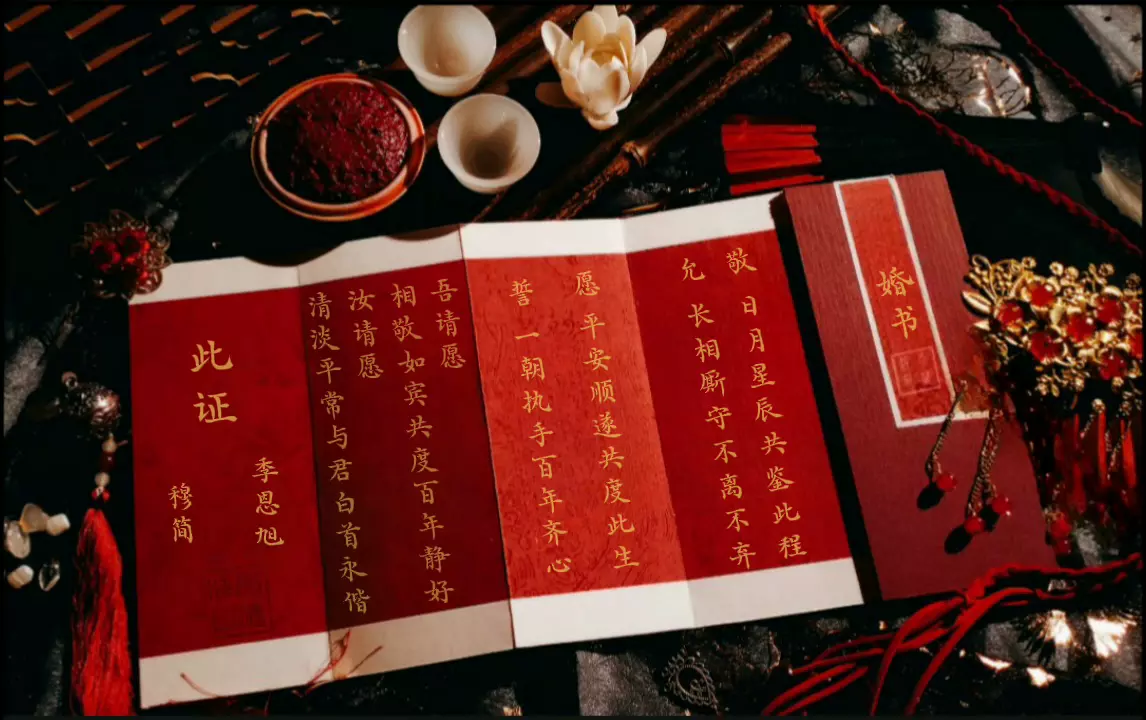 婚书
敬日月星辰共鉴此程
允长相厮守不离不弃
愿平安顺遂共度此生
誓一朝执手百年齐心
吾请愿
相敬如宾共度百年静好
汝请愿
清淡平常与君白首永偕
此证
季恩旭
穆简